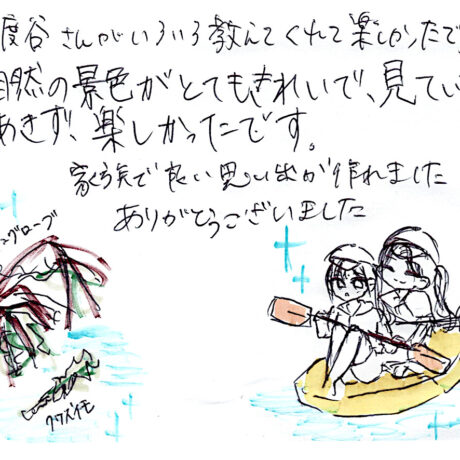 度谷さんがいろいろ教えてくれて楽しかったで
自然の景色がとてもきれいで、見てい
あきず、楽しかったです。
家族で良い思い出が作れました
ありがとうございました
ングローブ
クワズイモ